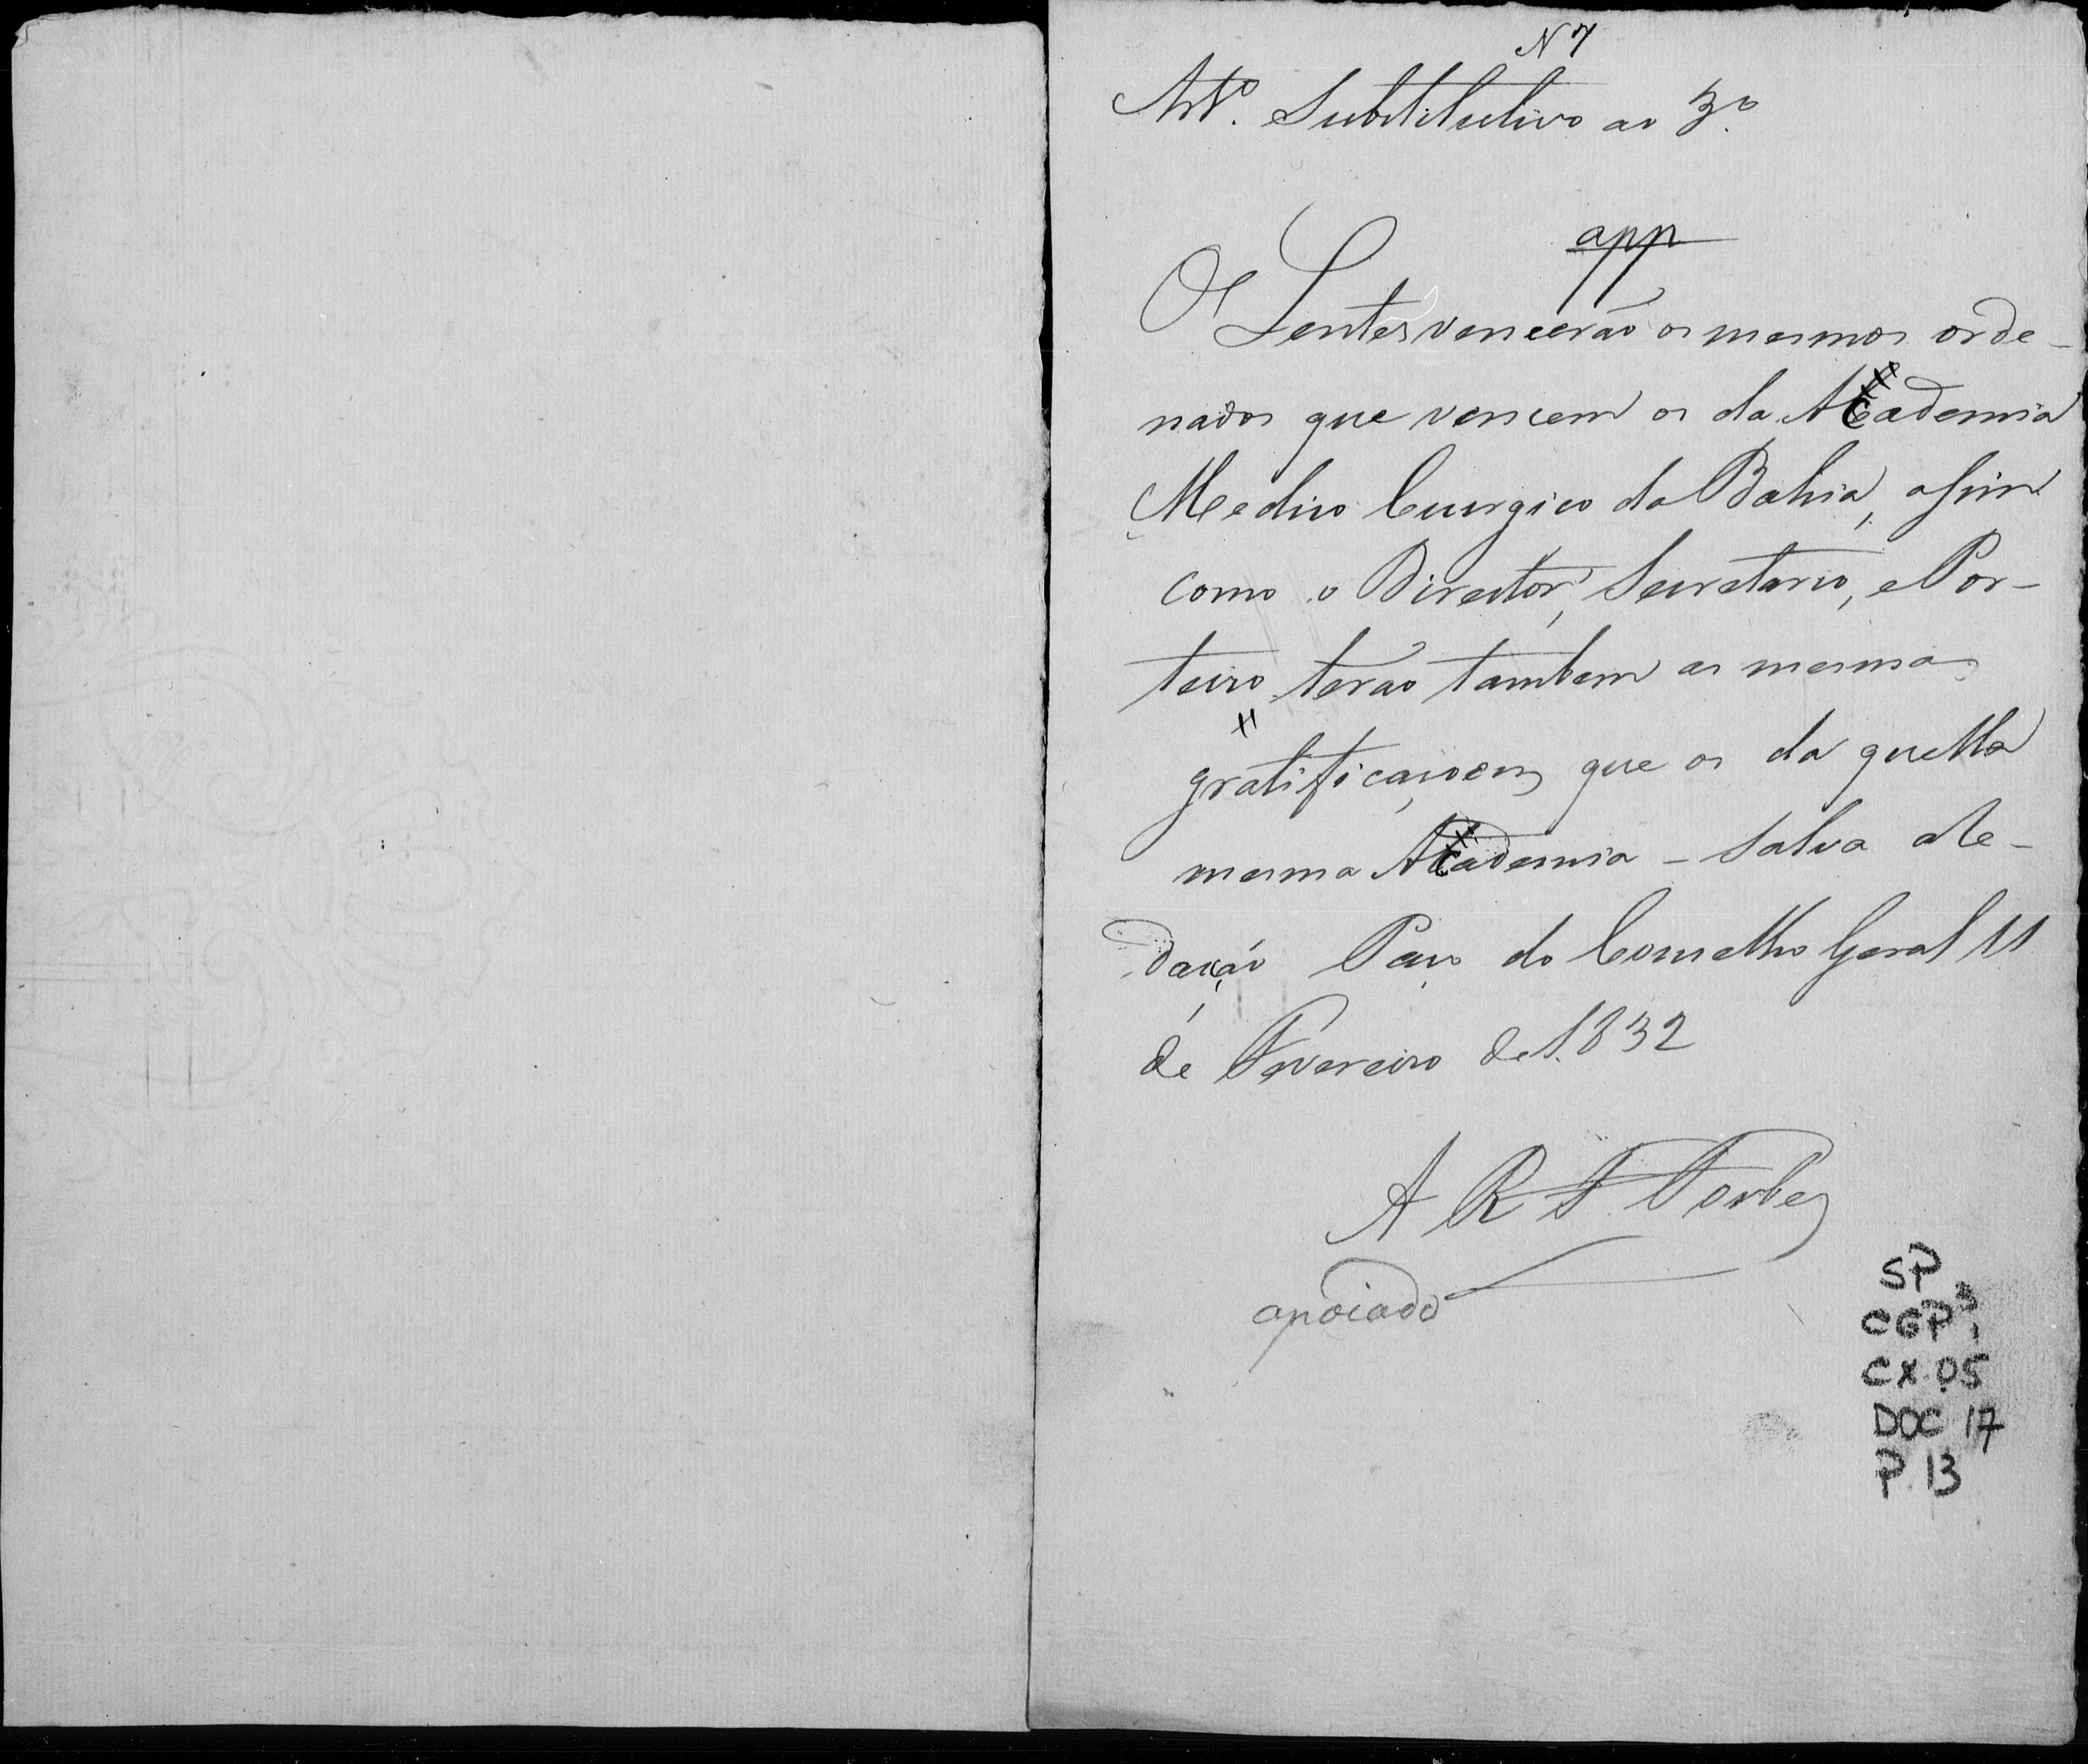 N 7
Artº. Substitutivo ao 3º.
app
Os Lentes vencerão os mesmos orde-
nados que vencem os da Academia
Medico Cirurgico da Bahia, assim
como o Director, Secretario, e Por-
teiro terão tambem as mesmas
gratificaçoens que os da quella
mesma Academia - Salva a Re-
dação Paço do Conselho Geral 11
de Fevereiro de 1832
A R T Torbes
apoiado
SP
CGP 3
1
CX. 05
DOC 17
P. 13